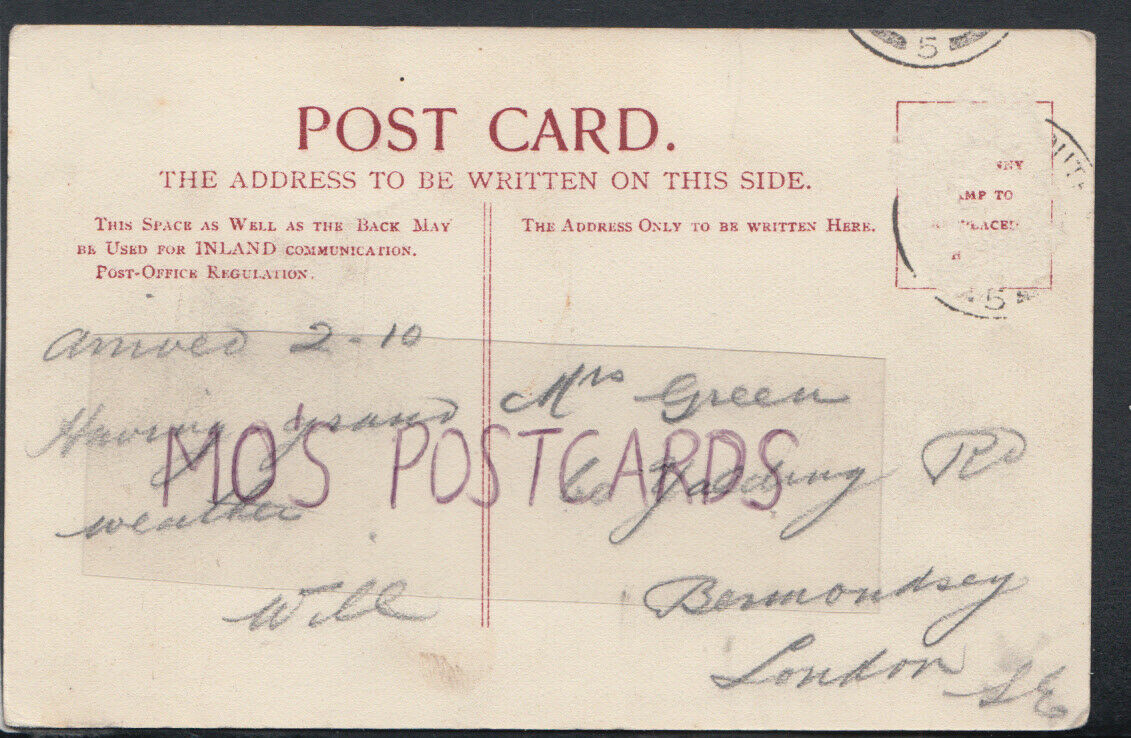 5
POST CARD.
THE ADDRESS TO BE WRITTEN ON THIS SIDE.
THIS SPACE AS WELL AS THE BACK MAY
BE USED FOR INLAND COMMUNICATION.
POST-OFFICE REGULATION.
THE ADDRESS ONLY TO BE WRITTEN HERE.
TO
5
Arrived 2-10
Having grand
weather.
Will
Mrs Green
Yalding Rd
Bermondsey
London SE
MO'S POSTCARDS